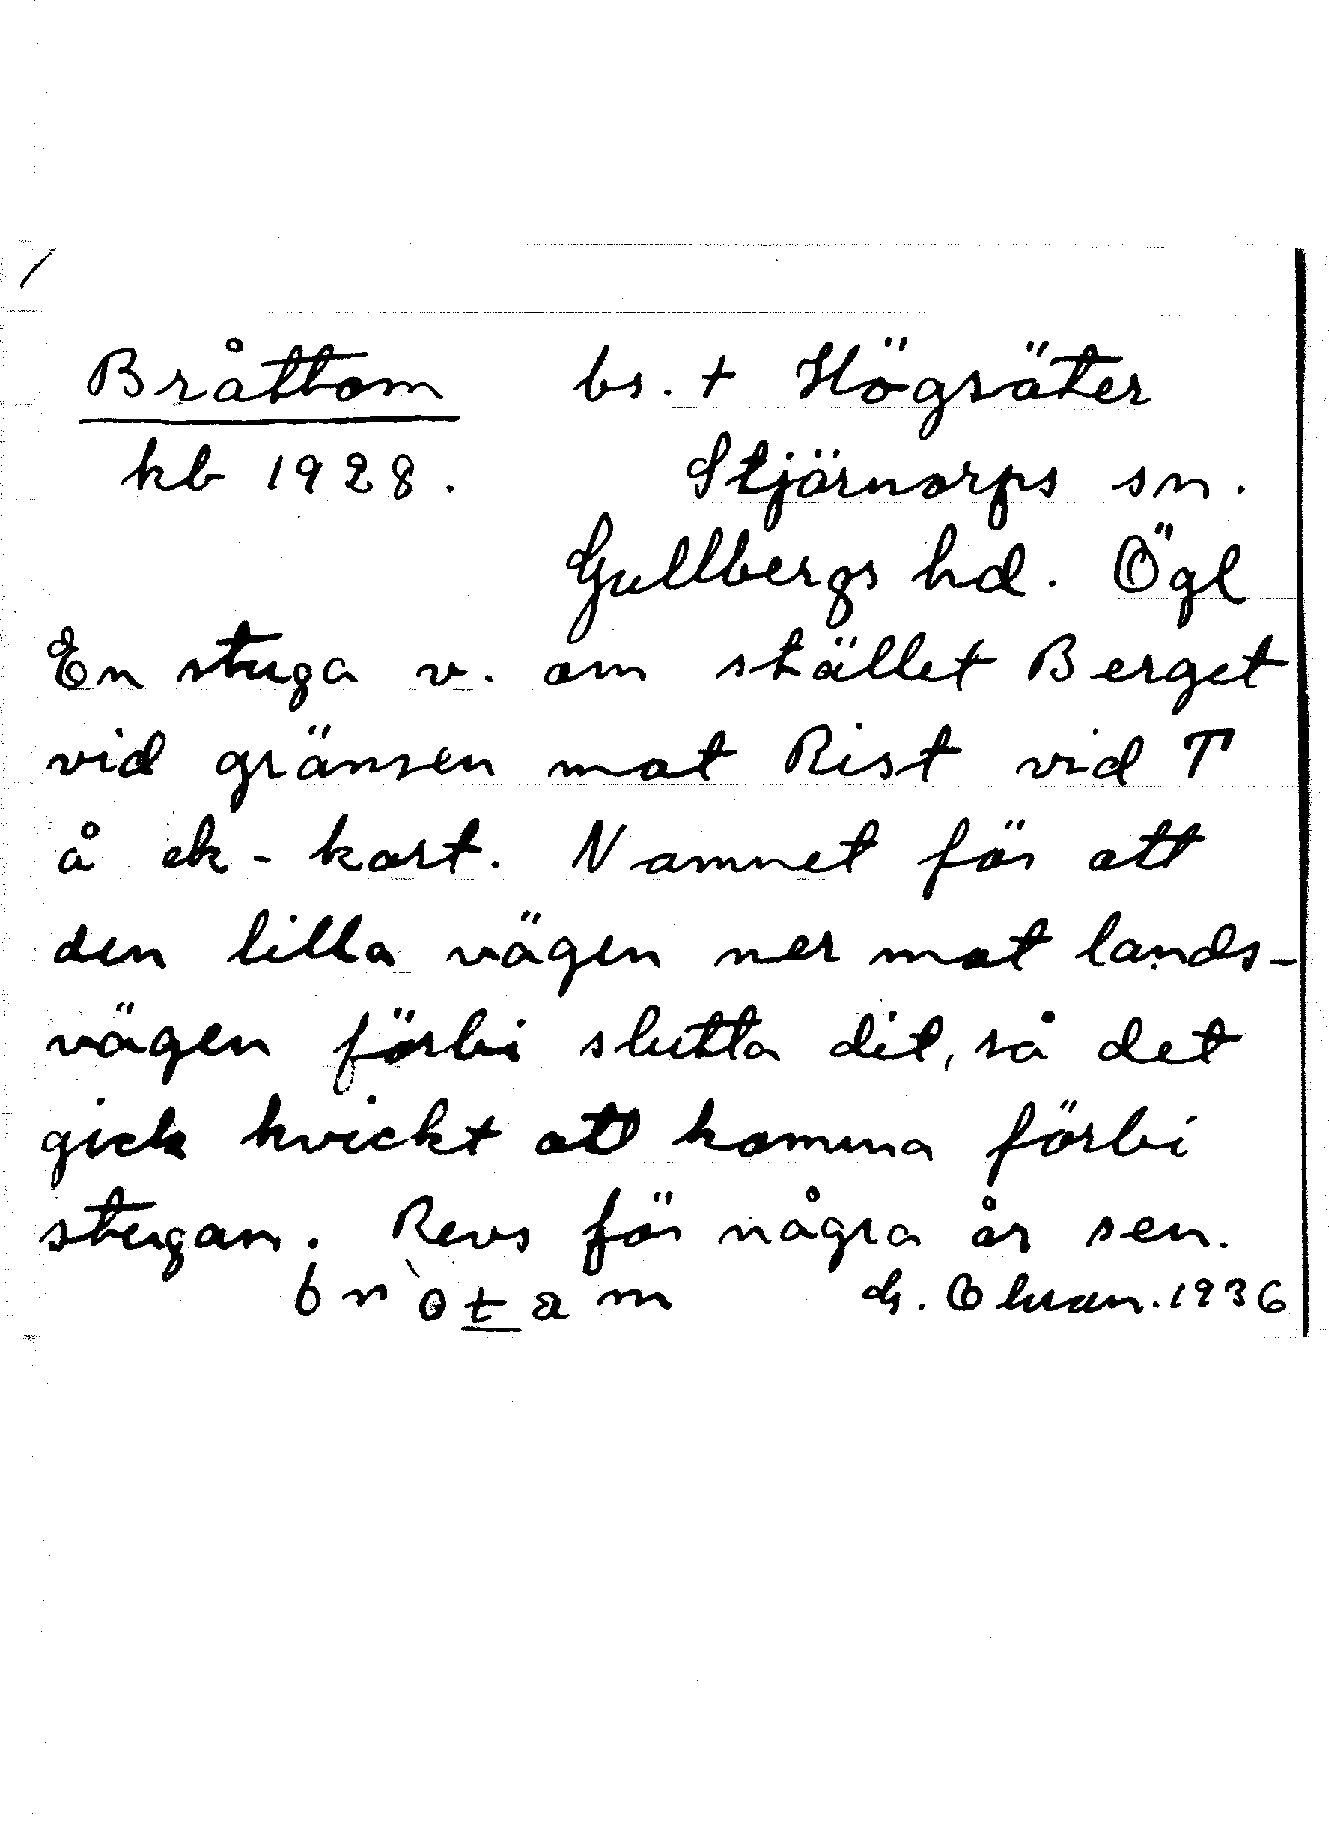 Bråttom bs. + Högsäter
kb 1928. Stjärnorps sn.
Gullbergs hd. Ögl
En stuga v. om stället Berget
vid gränsen mot Rist vid T
å ek-kart. Namnet för att
den lilla vägen ner mot lands-
vägen förbi slutta dit, så det
gick kvickt att komma förbi
stugan. Revs för några år sen.
1936